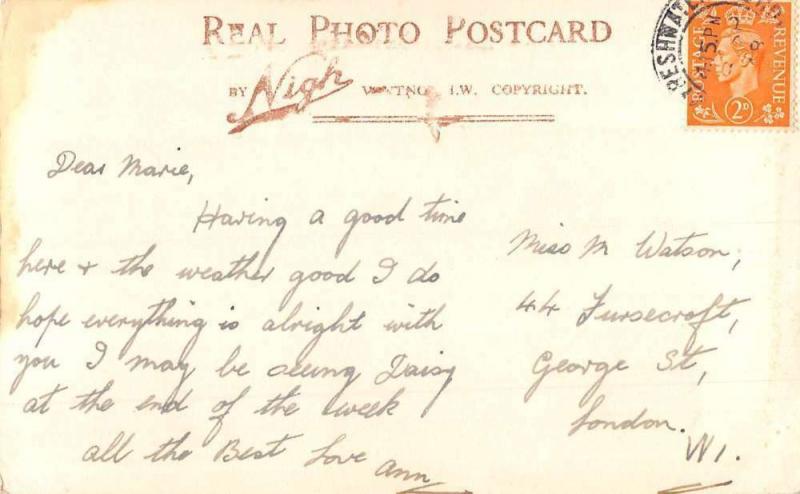 REAL PHOTO POSTCARD
BY Nigh VENTNOR I.W. COPYRIGHT.
POSTAGE REVENUE
2D
FRESHWATER
PM
Dear Marie,
Having a good time
here + the weather good I do
hope everything is alright with
you I may be seeing Daisy
at the end of the week
all the Best Love Ann
Miss M Watson,
44 Fursecroft,
George St,
London.
W1.